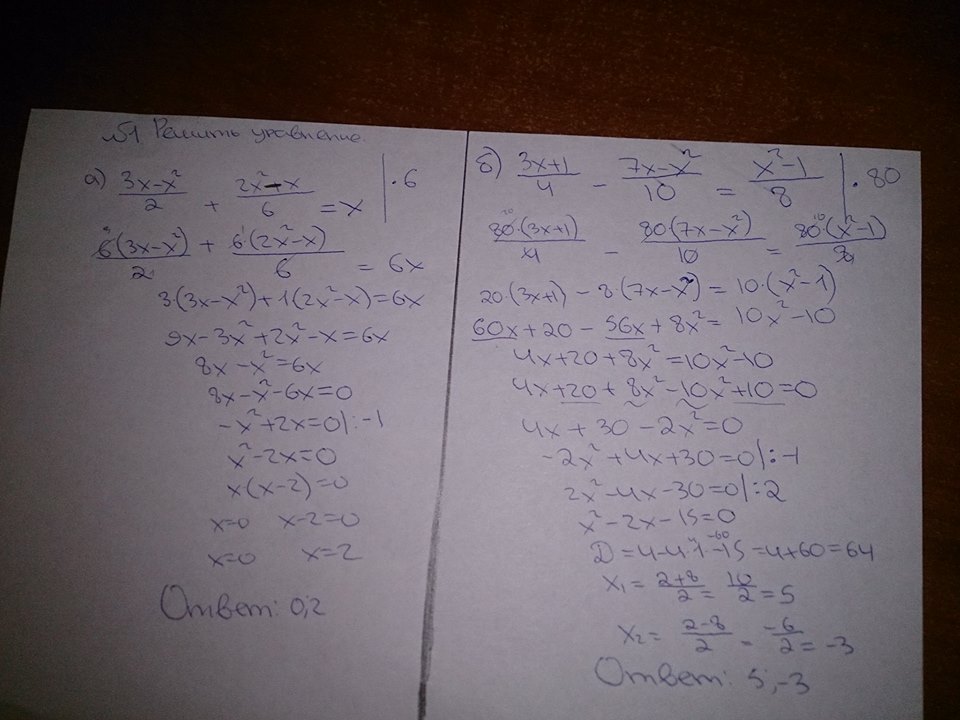 №1 Решить уравнение.
а) (3x-x²)/2 + (2x²-x)/6 = x | ·6
6(3x-x²)/2 + 6·(2x²-x)/6 = 6x
3(3x-x²)+1(2x²-x)=6x
9x-3x²+2x²-x=6x
8x-x²=6x
8x-x²-6x=0
-x²+2x=0|:-1
x²-2x=0
x(x-2)=0
x=0 x-2=0
x=0 x=2
Ответ: 0;2
б) (3x+1)/4 - (7x-x²)/10 = (x²-1)/8 | ·80
80·(3x+1)/4 - 80·(7x-x²)/10 = 80·(x²-1)/8
20·(3x+1)-8(7x-x²)=10·(x²-1)
60x+20-56x+8x²=10x²-10
4x+20+8x²=10x²-10
4x+20+8x²-10x²+10=0
4x+30-2x²=0
-2x²+4x+30=0|:-1
2x²-4x-30=0|:2
x²-2x-15=0
D=4-4·1·-15=4+60=64
x₁=(2+8)/2=10/2=5
x₂=(2-8)/2=-6/2=-3
Ответ: 5;-3